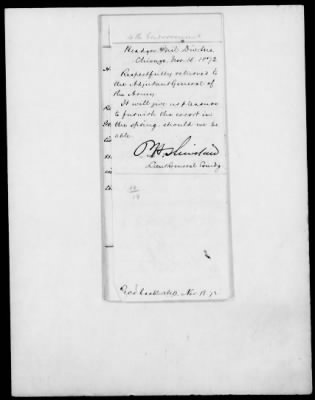 4th Endorsement
Hdqrs. Mil. Div. Mo.
Chicago, Nov. 16 1872
Respectfully returned to
the Adjutant General of
the Army.
It will give us pleasure
to furnish the escort in
the spring should we be
able.
P H Sheridan
Lieut General Comdg.
Nov. 18, 72